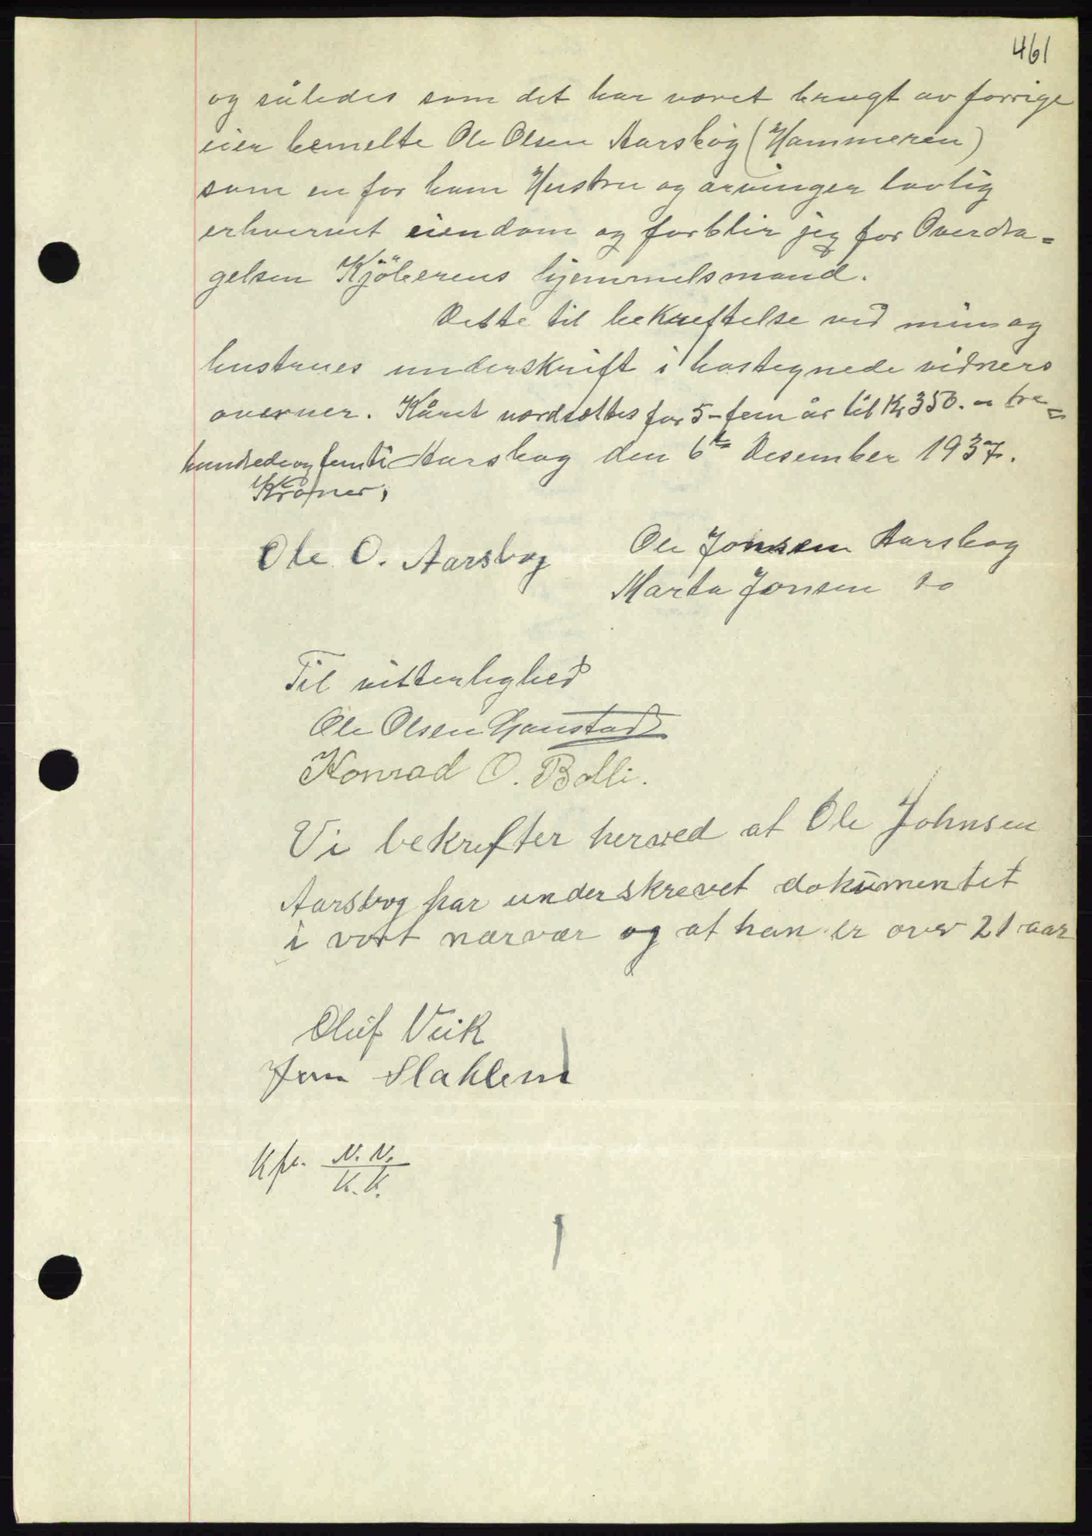 461
og således som det har været brugt av forrige
eier bemelte Ole Olsen Aarsbog (Hammeren)
som en for ham Hustru og arvinger lovlig
erhvervet eiendom og forblir jeg for Overdra-
gelsen Kjöberens hjemmelsmand.
Dette til bekræftelse ved min og
hustrues underskrift i hostegnede vidners
overvær. Kåret værdsættes for 5-fem år til Kr 350. - tre-
hundredeogfemti Aarsbog den 6te Desember 1937.
Kroner,
Ole O. Aarsbog
Ole Jonsen Aarsbog
Marta Jonsen do
Til vitterlighed
Ole Olsen
Konrad O. Bolli.
Vi bekrefter herved at Ole Johnsen
Aarsbog har underskrevet dokumentet
i vort nærvær og at han er over 21 aar
Oluf Viik
Jens
Kfr. N. N.
K. K.